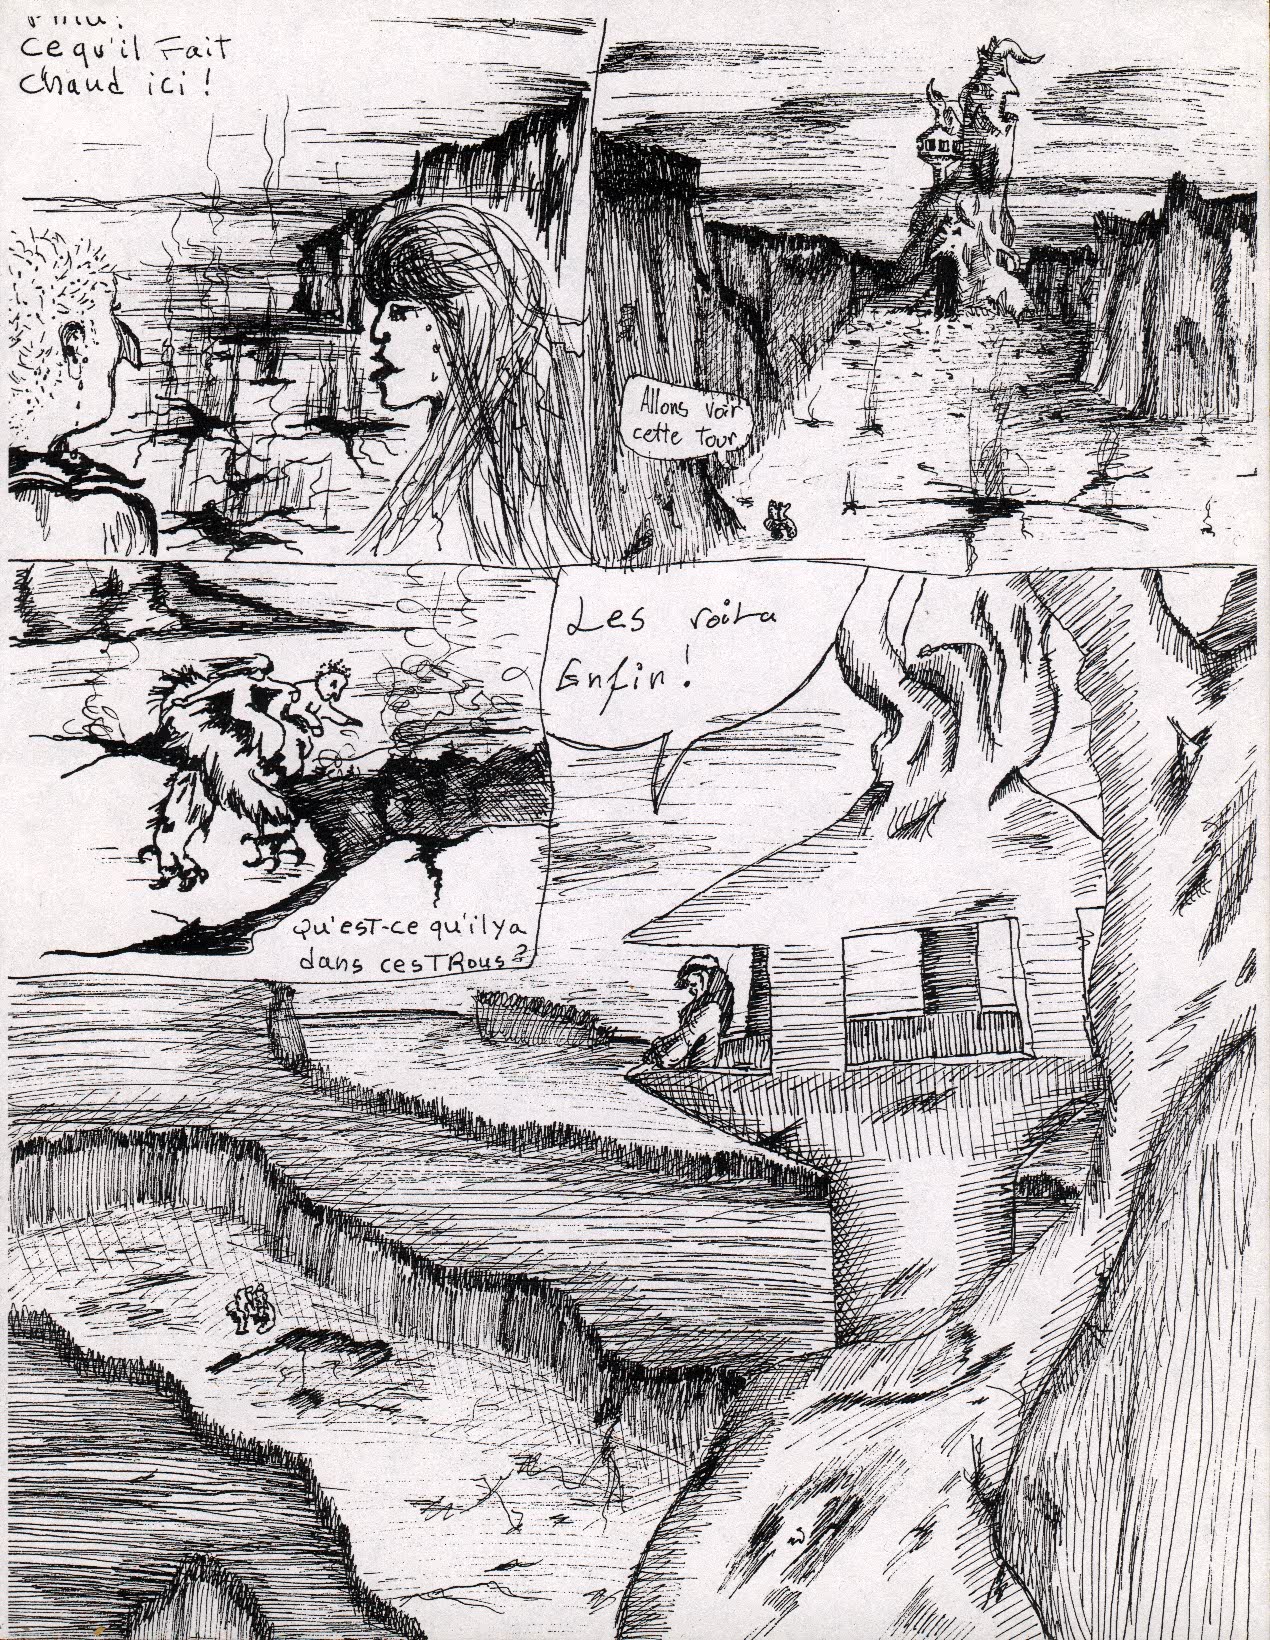 Ce qu'il Fait
Chaud ici !
Allons voir
cette tour
Les voila
Enfin !
Qu'est-ce qu'il y a
dans ces TRous ?